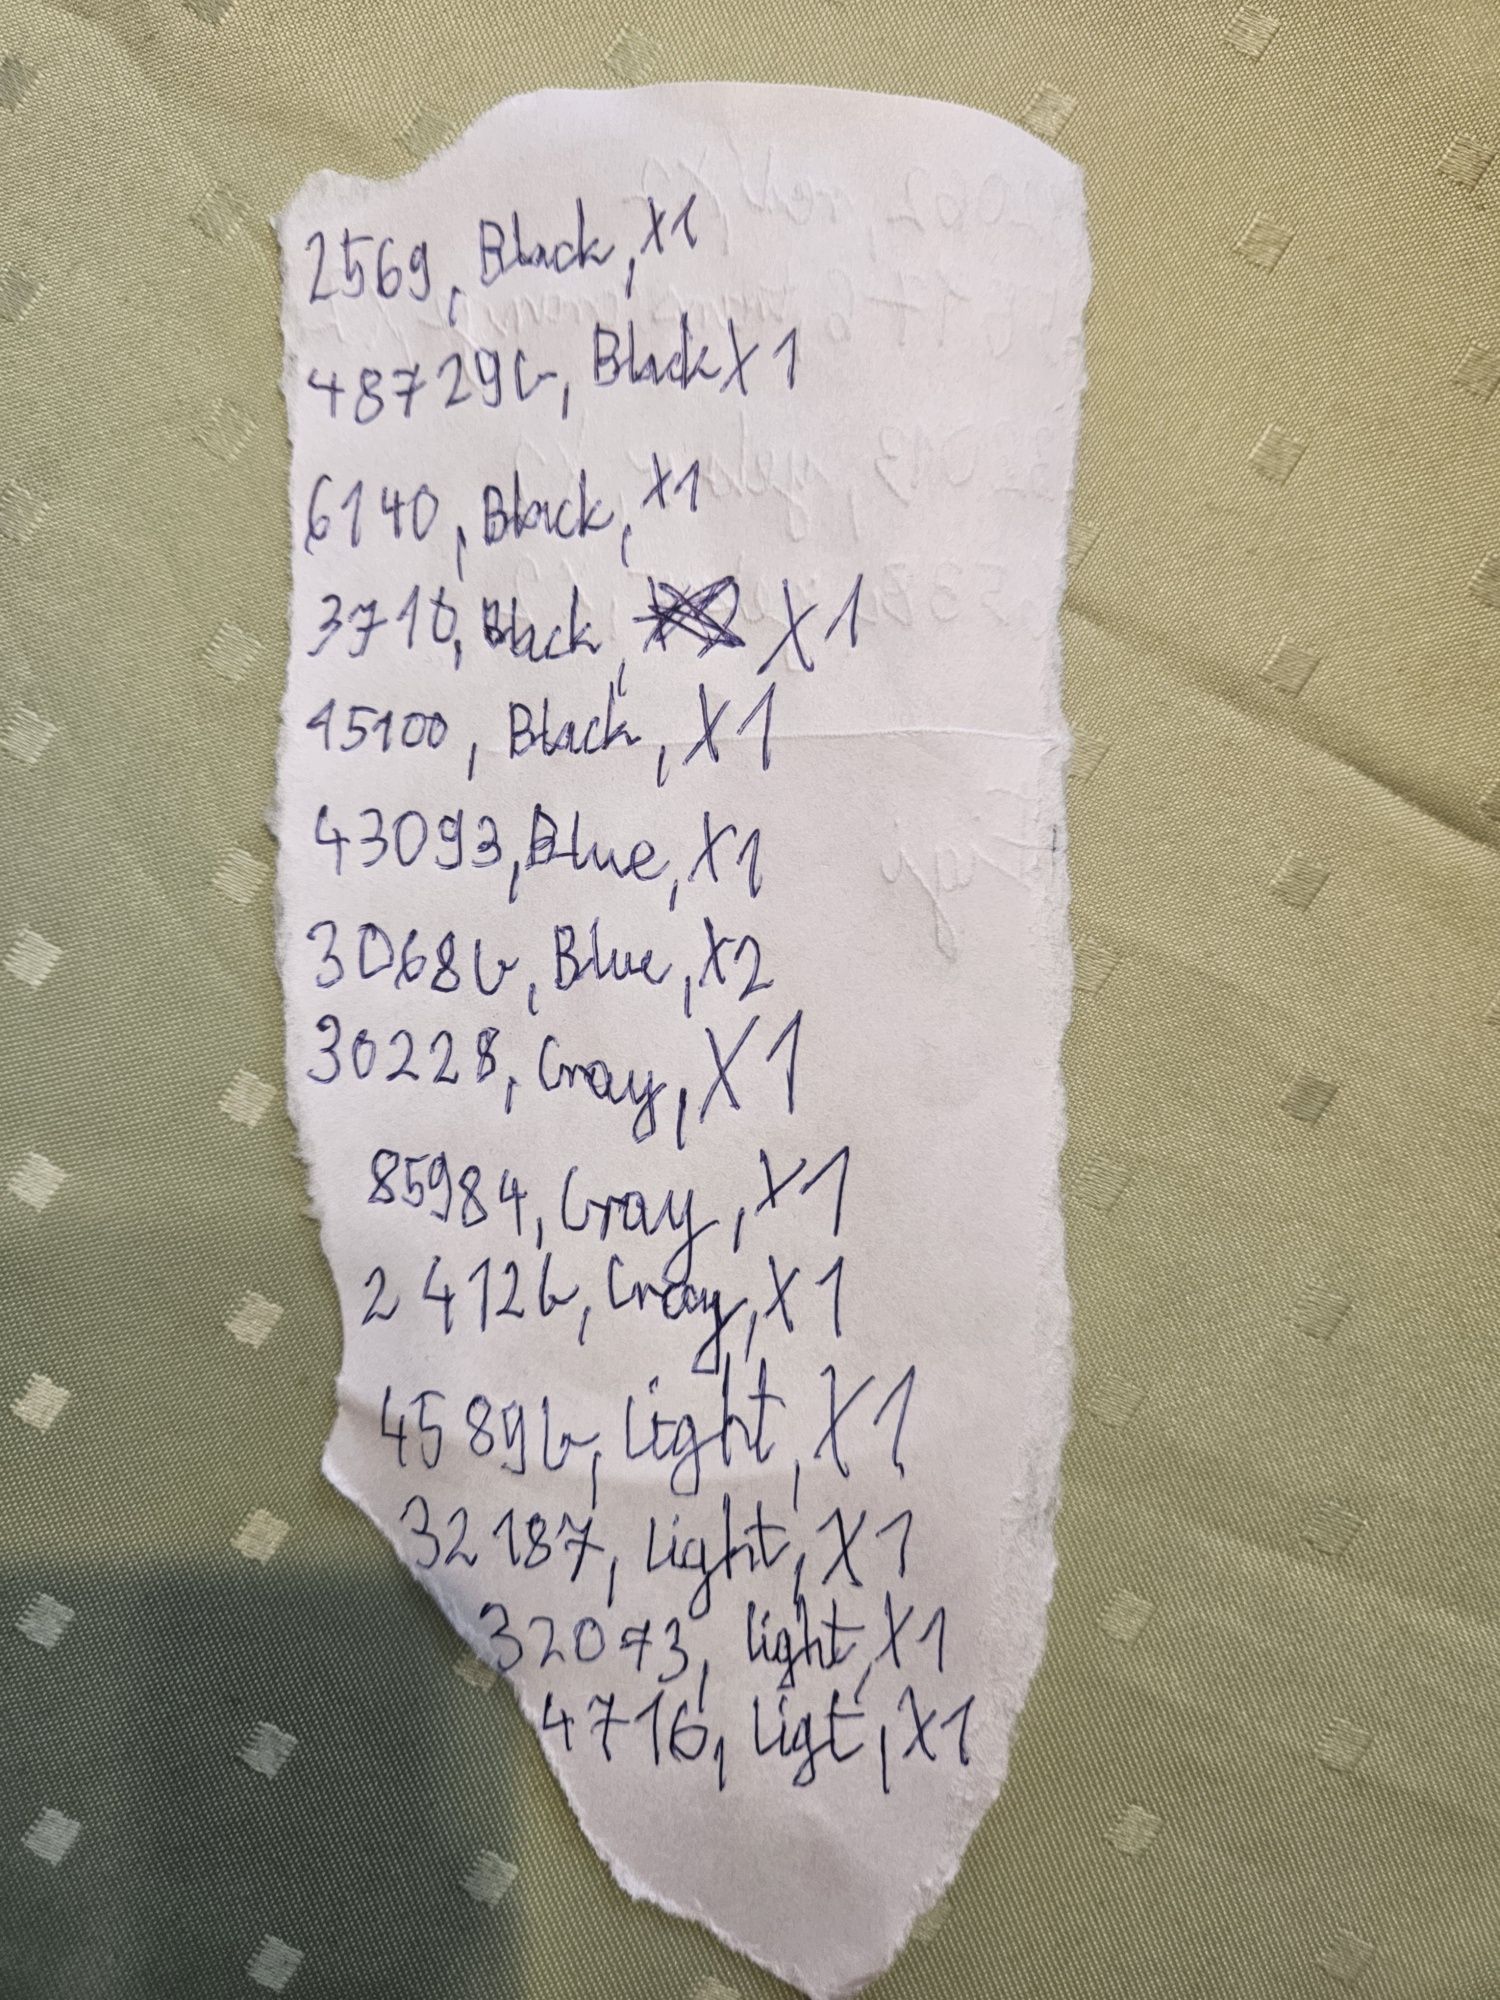 2569, Black, X1
48729b, Black X1
6140, Black, X1
3710, Black, X1
15100, Black, X1
43093, Blue, X1
3068b, Blue, X2
30228, Gray, X1
85984, Gray, X1
2412b, Gray, X1
4589b, Light, X1
32187, Light, X1
32073, light, X1
4716, Ligt, X1